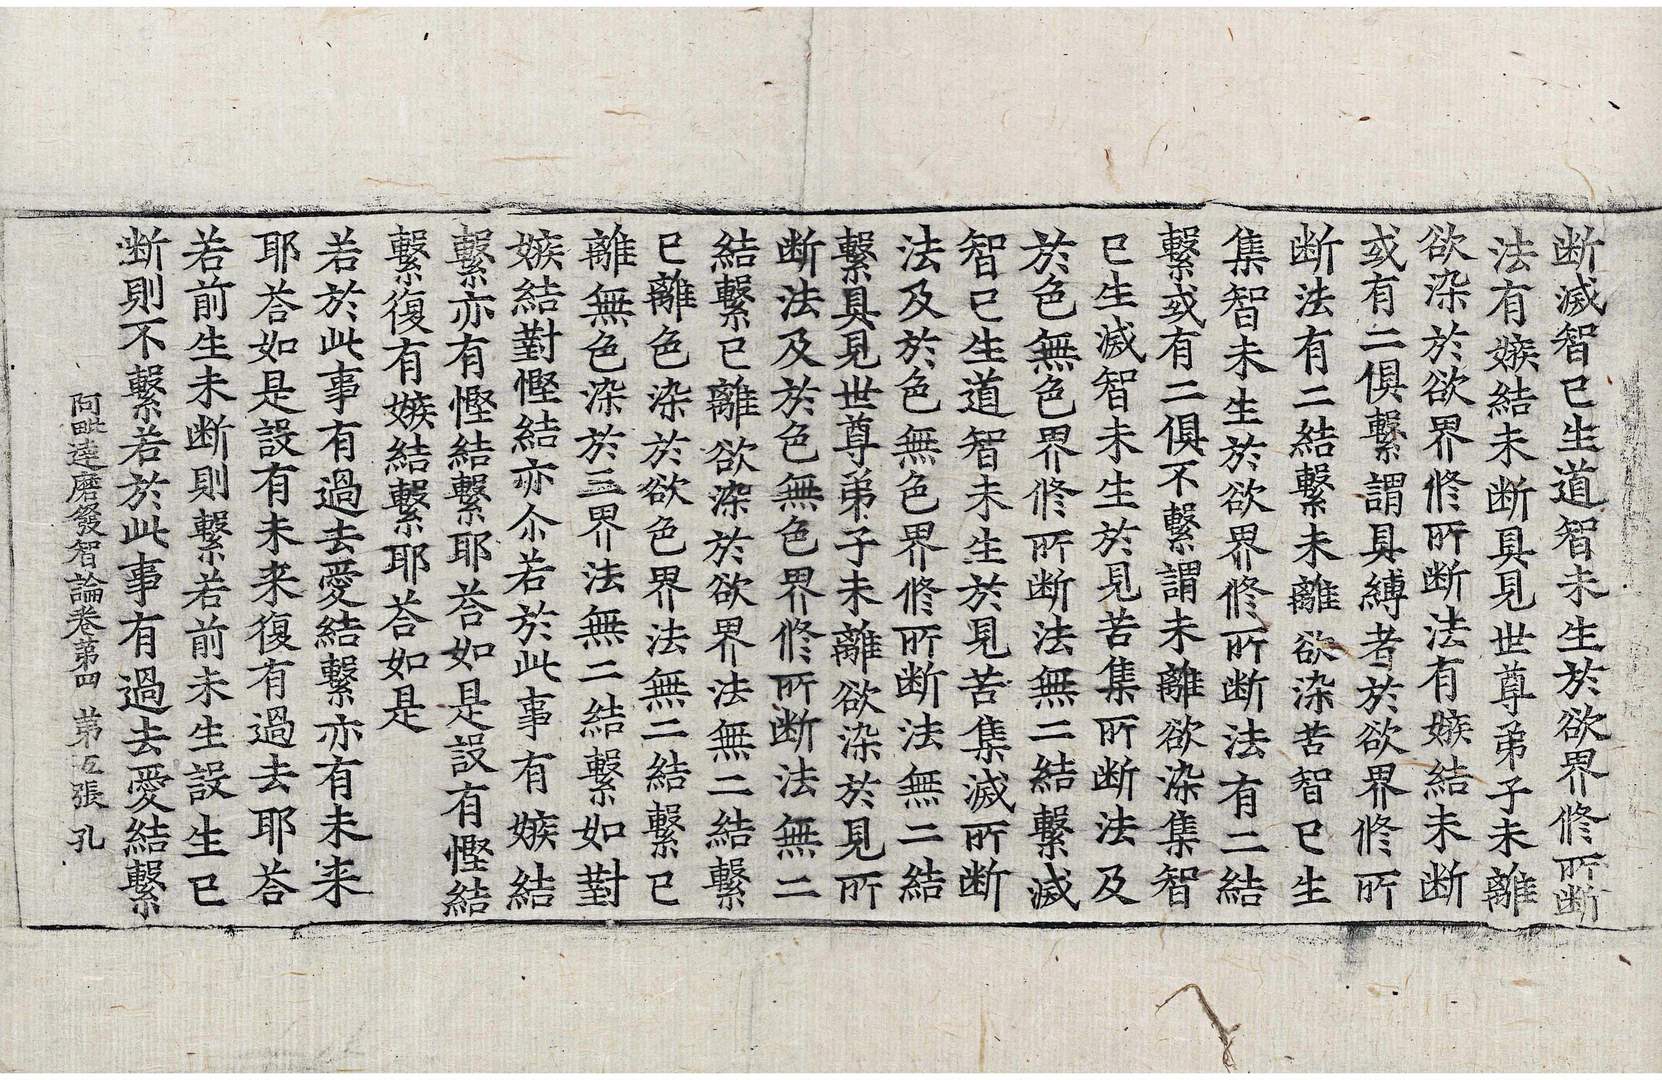 断滅智已生道智未生於欲界修所断
法有嫉結未断具見世尊弟子未離
欲染於欲界修所断法有嫉結未断
或有二俱繫謂具縛者於欲界修所
断法有二結繫未離欲染苦智已生
集智未生於欲界修所断法有二結
繫或有二俱不繫謂未離欲染集智
已生滅智未生於見苦集所断法及
於色無色界修所断法無二結繫滅
智已生道智未生於見苦集滅所断
法及於色無色界修所断法無二結
繫具見世尊弟子未離欲染於見所
断法及於色無色界修所断法無二
結繫已離欲染於欲界法無二結繫
已離色染於欲色界法無二結繫已
離無色染於三界法無二結繫如對
嫉結對慳結亦尒若於此事有嫉結
繫亦有慳結繫耶荅如是設有慳結
繫復有嫉結繫耶荅如是
若於此事有過去愛結繫亦有未来
耶荅如是設有未来復有過去耶荅
若前生未断則繫若前未生設生已
断則不繫若於此事有過去愛結繫
阿毗達磨發智論卷第四 第五張 孔